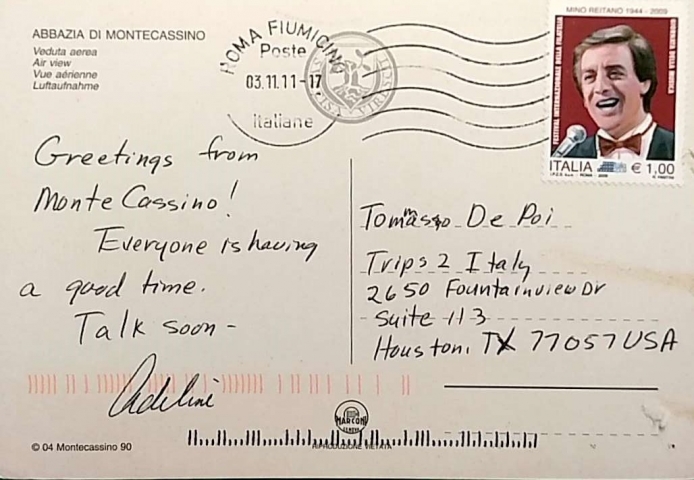 ABBAZIA DI MONTECASSINO
Veduta aerea
Air view
Vue aérienne
Luftaufnahme
ROMA FIUMICINO
Poste
03.11.11-17
italiane
MINO REITANO 1944 - 2009
FESTIVAL INTERNAZIONALE DELLA FILATELIA
ITALIA € 1,00
Greetings from
Monte Cassino!
Everyone is having
a good time.
Talk soon -
Adeline
Tomasso De Poi
Trips 2 Italy
2650 Fountainview Dr
Suite 113
Houston, TX 77057 USA
MARCONI
GENOVA
© 04 Montecassino 90
RIPRODUZIONE VIETATA